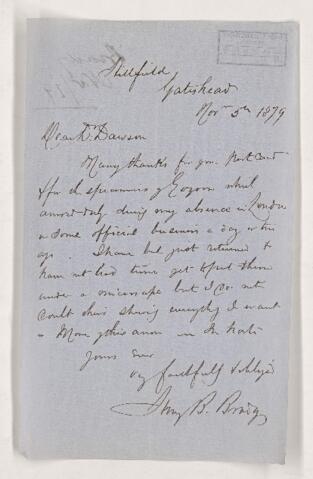 Gateshead
Nov 5th 1879
Dear Dr Dawson
Many thanks for your Post Card
& for the specimens of Eozoon which
arrived duly during my absence in London
on some official business a day or two
ago. I have but just returned &
have not had time yet to put them
under a microscope but I do not
doubt their showing everything I want
— More of this anon — In haste
Yours Ever
very faithfully & obliged
Henry B. Brady